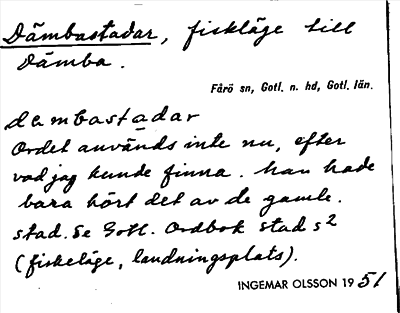 Dämbastadar, fiskläge till
Dämba.
Fårö sn, Gotl. n. hd, Gotl. län.
dambastadar
Ordet används inte nu, efter
vad jag kunde finna. Man hade
bara hört det av de gamle.
stad. Se Gotl. Ordbok stad s²
(fiskeläge, landningsplats).
INGEMAR OLSSON 1951